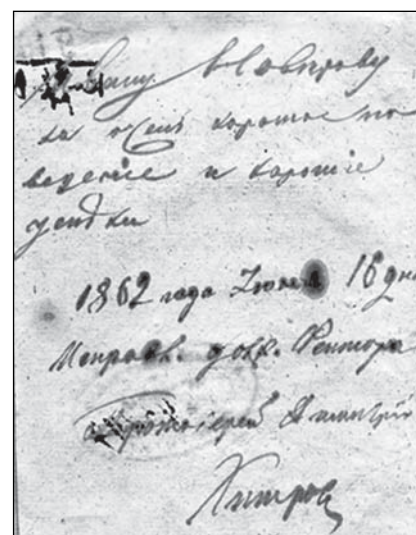 за очень хорошее по
ведение и хорошие
успѣхи
1862 года Iюня 16 дня
Исправл. долж. Ректора
Протоiерей Димитрiй
Хитров